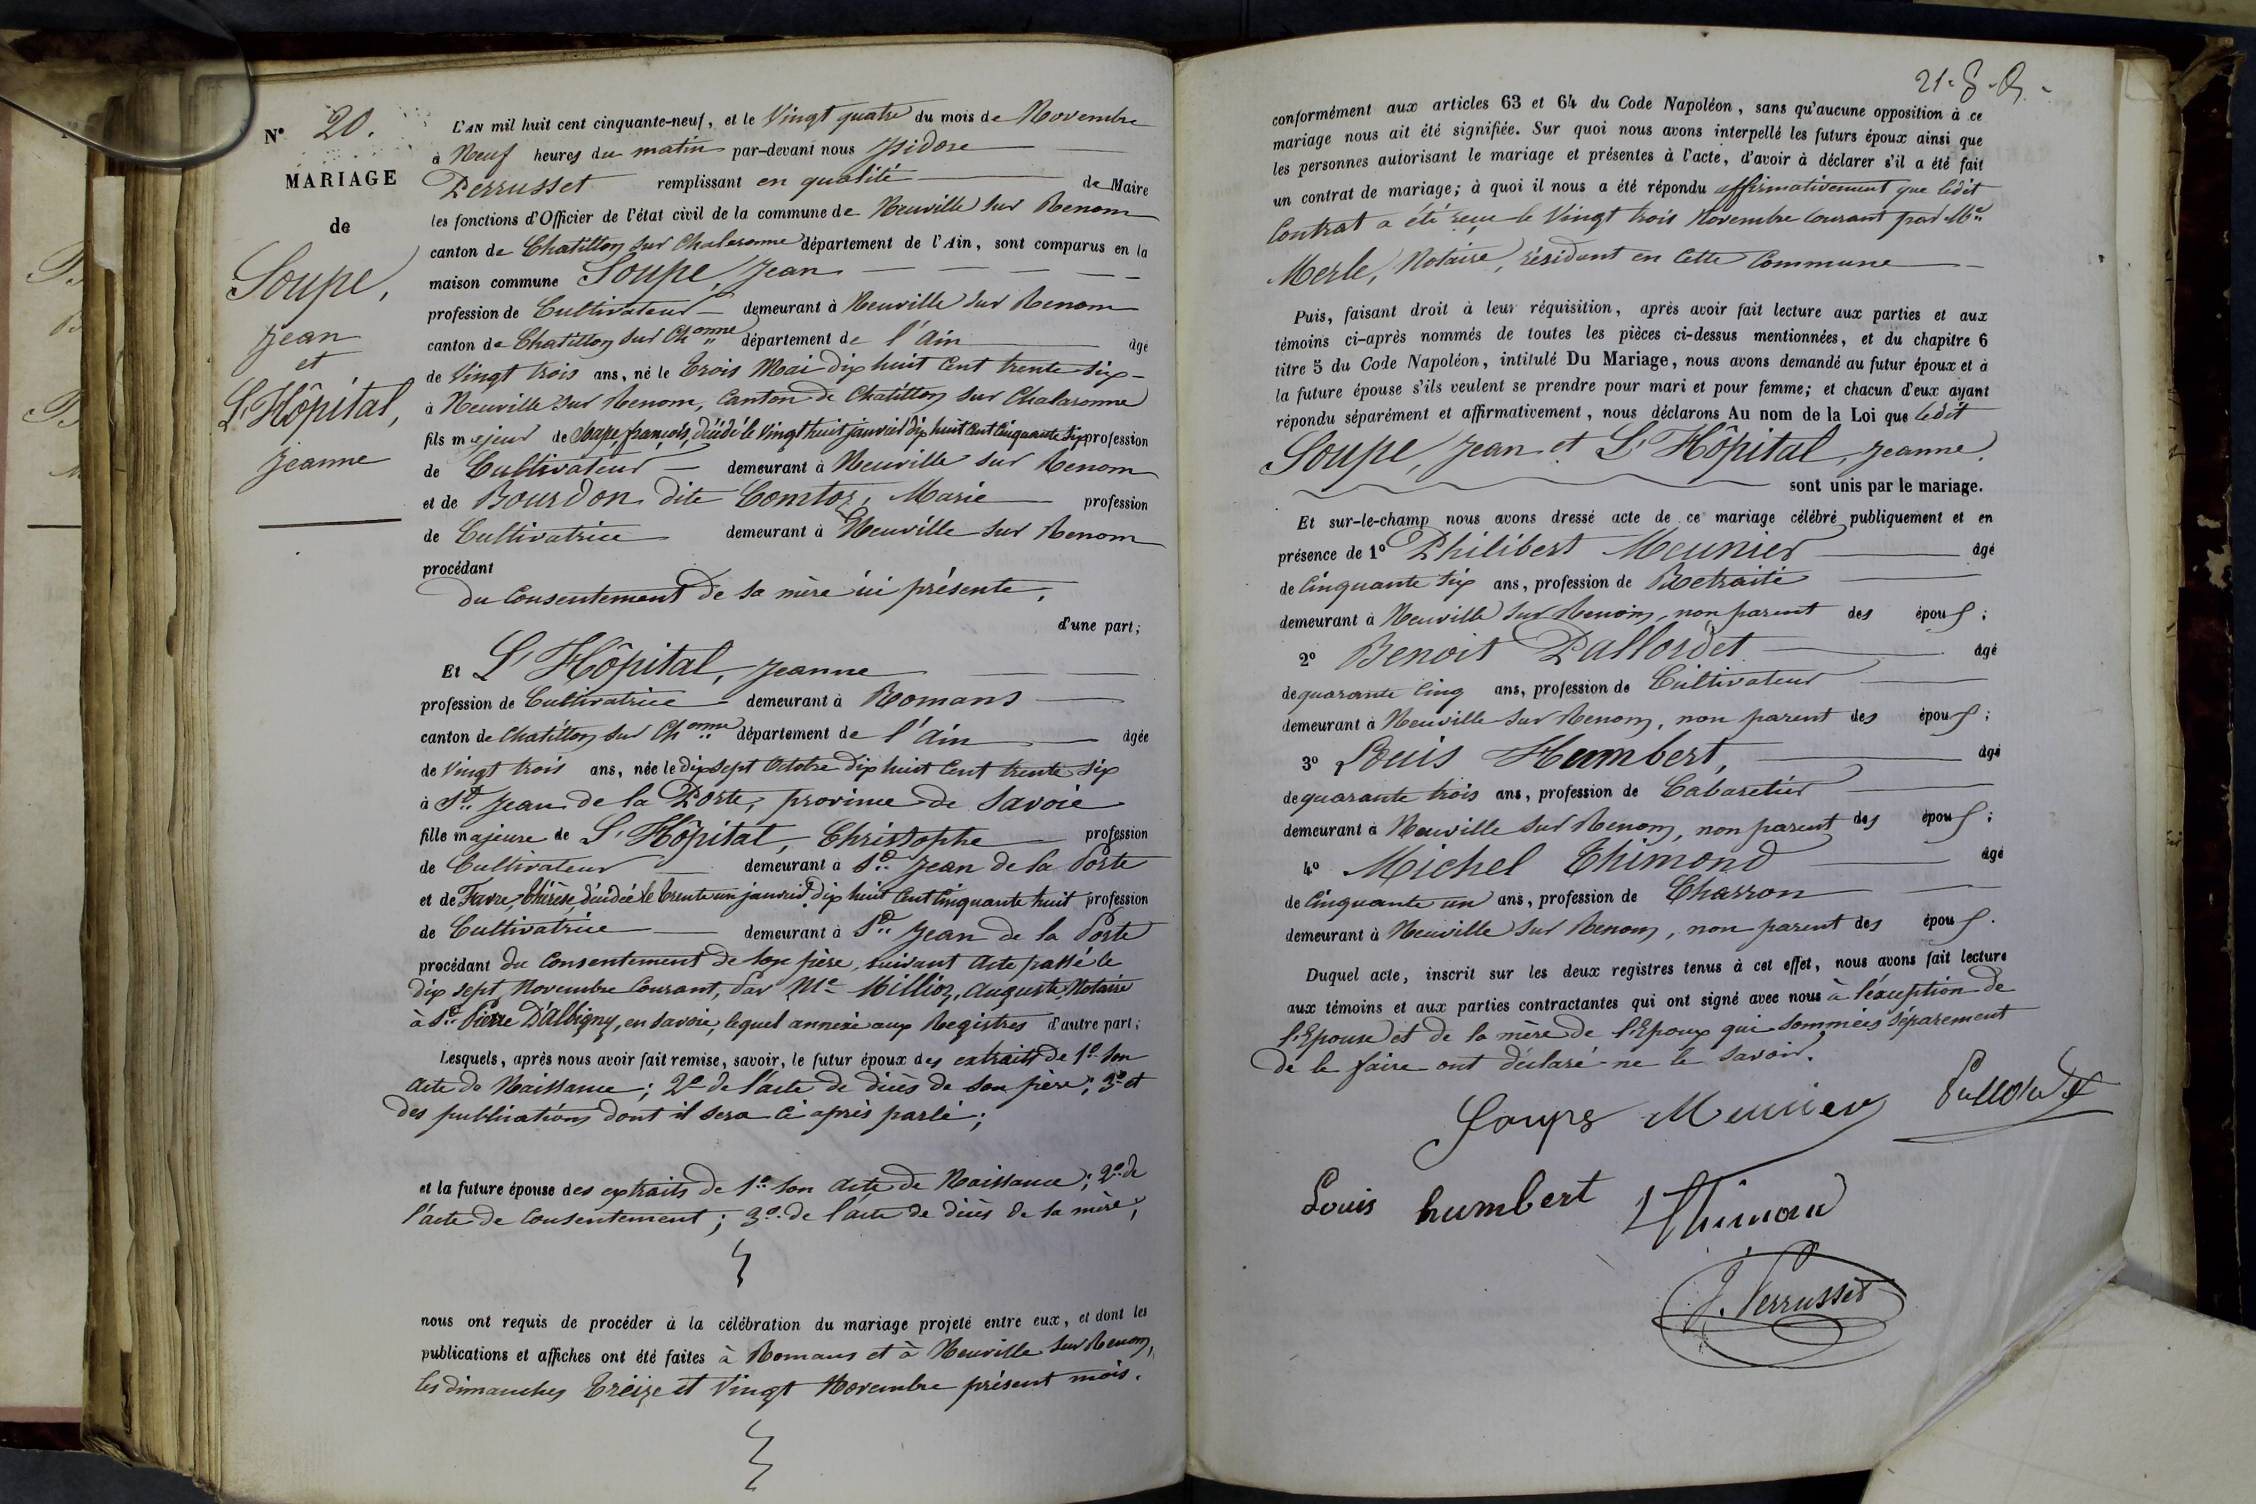 N° 20.
MARIAGE
de
Soupe,
Jean
et
L'Hôpital,
Jeanne
L'AN mil huit cent cinquante-neuf, et le Vingt quatre du mois de Novembre
à Neuf heures du matin par-devant nous Isidore
Perrusset remplissant en qualité de Maire
les fonctions d'Officier de l'état civil de la commune de Neuville sur Renom
canton de Chatillon sur Chalaronne département de l'Ain, sont comparus en la
maison commune Soupe, Jean
profession de Cultivateur demeurant à Neuville sur Renom
canton de Chatillon sur Chonne département de l'Ain âgé
de Vingt trois ans, né le Trois Mai dix huit Cent trente six
à Neuville sur Renom, Canton de Chatillon sur Chalaronne
fils majeur de Soupe, françois, décédé le Vingt huit janvier dix huit Cent Cinquante six profession
de Cultivateur demeurant à Neuville sur Renom
et de Bourdon dite Comtoz, Marie profession
de Cultivatrice demeurant à Neuville sur Renom
procédant
du Consentement de sa mère ici présente,
d'une part;
Et L'Hôpital, Jeanne
profession de Cultivatrice demeurant à Romans
canton de Chatillon sur Chonne département de l'Ain âgée
de Vingt trois ans, née le Dix sept Octobre Dix huit Cent trente six
à St. Jean de la Porte, province de Savoie
fille majeure de L'Hôpital, Christophe profession
de Cultivateur demeurant à St. Jean de la Porte
et de Favre, Thérèse, décédée le trente un janvier dix huit Cent Cinquante huit profession
de Cultivatrice demeurant à St. Jean de la Porte
procédant du Consentement de son père, suivant Acte passé le
dix sept Novembre Courant, par Me Millioz, Auguste, Notaire
à St. Pierre D'Albigny, en Savoie, lequel annexé aux Registres d'autre part;
Lesquels, après nous avoir fait remise, savoir, le futur époux des extraits de 1° son
Acte de Naissance; 2° de l'acte de décès de son père; 3° et
des publications dont il sera Ci après parlé;
et la future épouse des extraits de 1° son Acte de Naissance; 2° de
l'acte de Consentement; 3° de l'acte de décès de sa mère;
nous ont requis de procéder à la célébration du mariage projeté entre eux, et dont les
publications et affiches ont été faites à Romans et à Neuville sur Renom,
les dimanches Treize et Vingt Novembre présent mois.
conformément aux articles 63 et 64 du Code Napoléon, sans qu'aucune opposition à ce
mariage nous ait été signifiée. Sur quoi nous avons interpellé les futurs époux ainsi que
les personnes autorisant le mariage et présentes à l'acte, d'avoir à déclarer s'il a été fait
un contrat de mariage; à quoi il nous a été répondu affirmativement que ledit
Contrat a été reçu le Vingt trois Novembre Courant par Me
Merle, Notaire, résidant en Cette Commune
Puis, faisant droit à leur réquisition, après avoir fait lecture aux parties et aux
témoins ci-après nommés de toutes les pièces ci-dessus mentionnées, et du chapitre 6
titre 5 du Code Napoléon, intitulé Du Mariage, nous avons demandé au futur époux et à
la future épouse s'ils veulent se prendre pour mari et pour femme; et chacun d'eux ayant
répondu séparément et affirmativement, nous déclarons Au nom de la Loi que ledit
Soupe, Jean et L'Hôpital, Jeanne
sont unis par le mariage.
Et sur-le-champ nous avons dressé acte de ce mariage célébré publiquement et en
présence de 1° Philibert Meunier âgé
de Cinquante six ans, profession de Retraité
demeurant à Neuville sur Renom, non parent des époux;
2° Benoit Pallordet âgé
de quarante cinq ans, profession de Cultivateur
demeurant à Neuville sur Renom, non parent des époux;
3° Louis Humbert, âgé
de quarante trois ans, profession de Cabaretier
demeurant à Neuville sur Renom, non parent des époux;
4° Michel Thimond âgé
de Cinquante un ans, profession de Charron
demeurant à Neuville sur Renom, non parent des époux.
Duquel acte, inscrit sur les deux registres tenus à cet effet, nous avons fait lecture
aux témoins et aux parties contractantes qui ont signé avec nous à l'éxception de
l'Epouse et de la mère de l'Epoux qui sommées séparement
de le faire ont déclaré ne le savoir.
Soupe Meunier Pallordet
Louis humbert Thimond
J. Perrusset